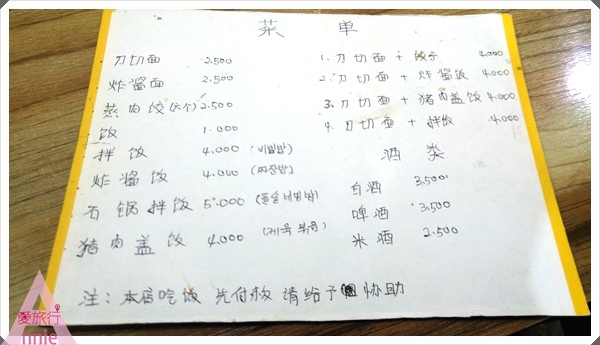 菜 单
刀切面 2.500
炸酱面 2.500
蒸肉饺(六个) 2.500
饭 1.000
拌饭 4.000 (비빔밥)
炸酱饭 4.000 (짜장밥)
石锅拌饭 5.000 (돌솥비빔밥)
猪肉盖饭 4.000 (제육볶음)
1. 刀切面 + 饺子 4.000
2. 刀切面 + 炸酱饭 4.000
3. 刀切面 + 猪肉盖饭 4.000
4. 刀切面 + 拌饭 4.000
酒 类
白酒 3.500
啤酒 3.500
米酒 2.500
注: 本店吃饭 先付款 请给予 协助
愛旅行
nnie